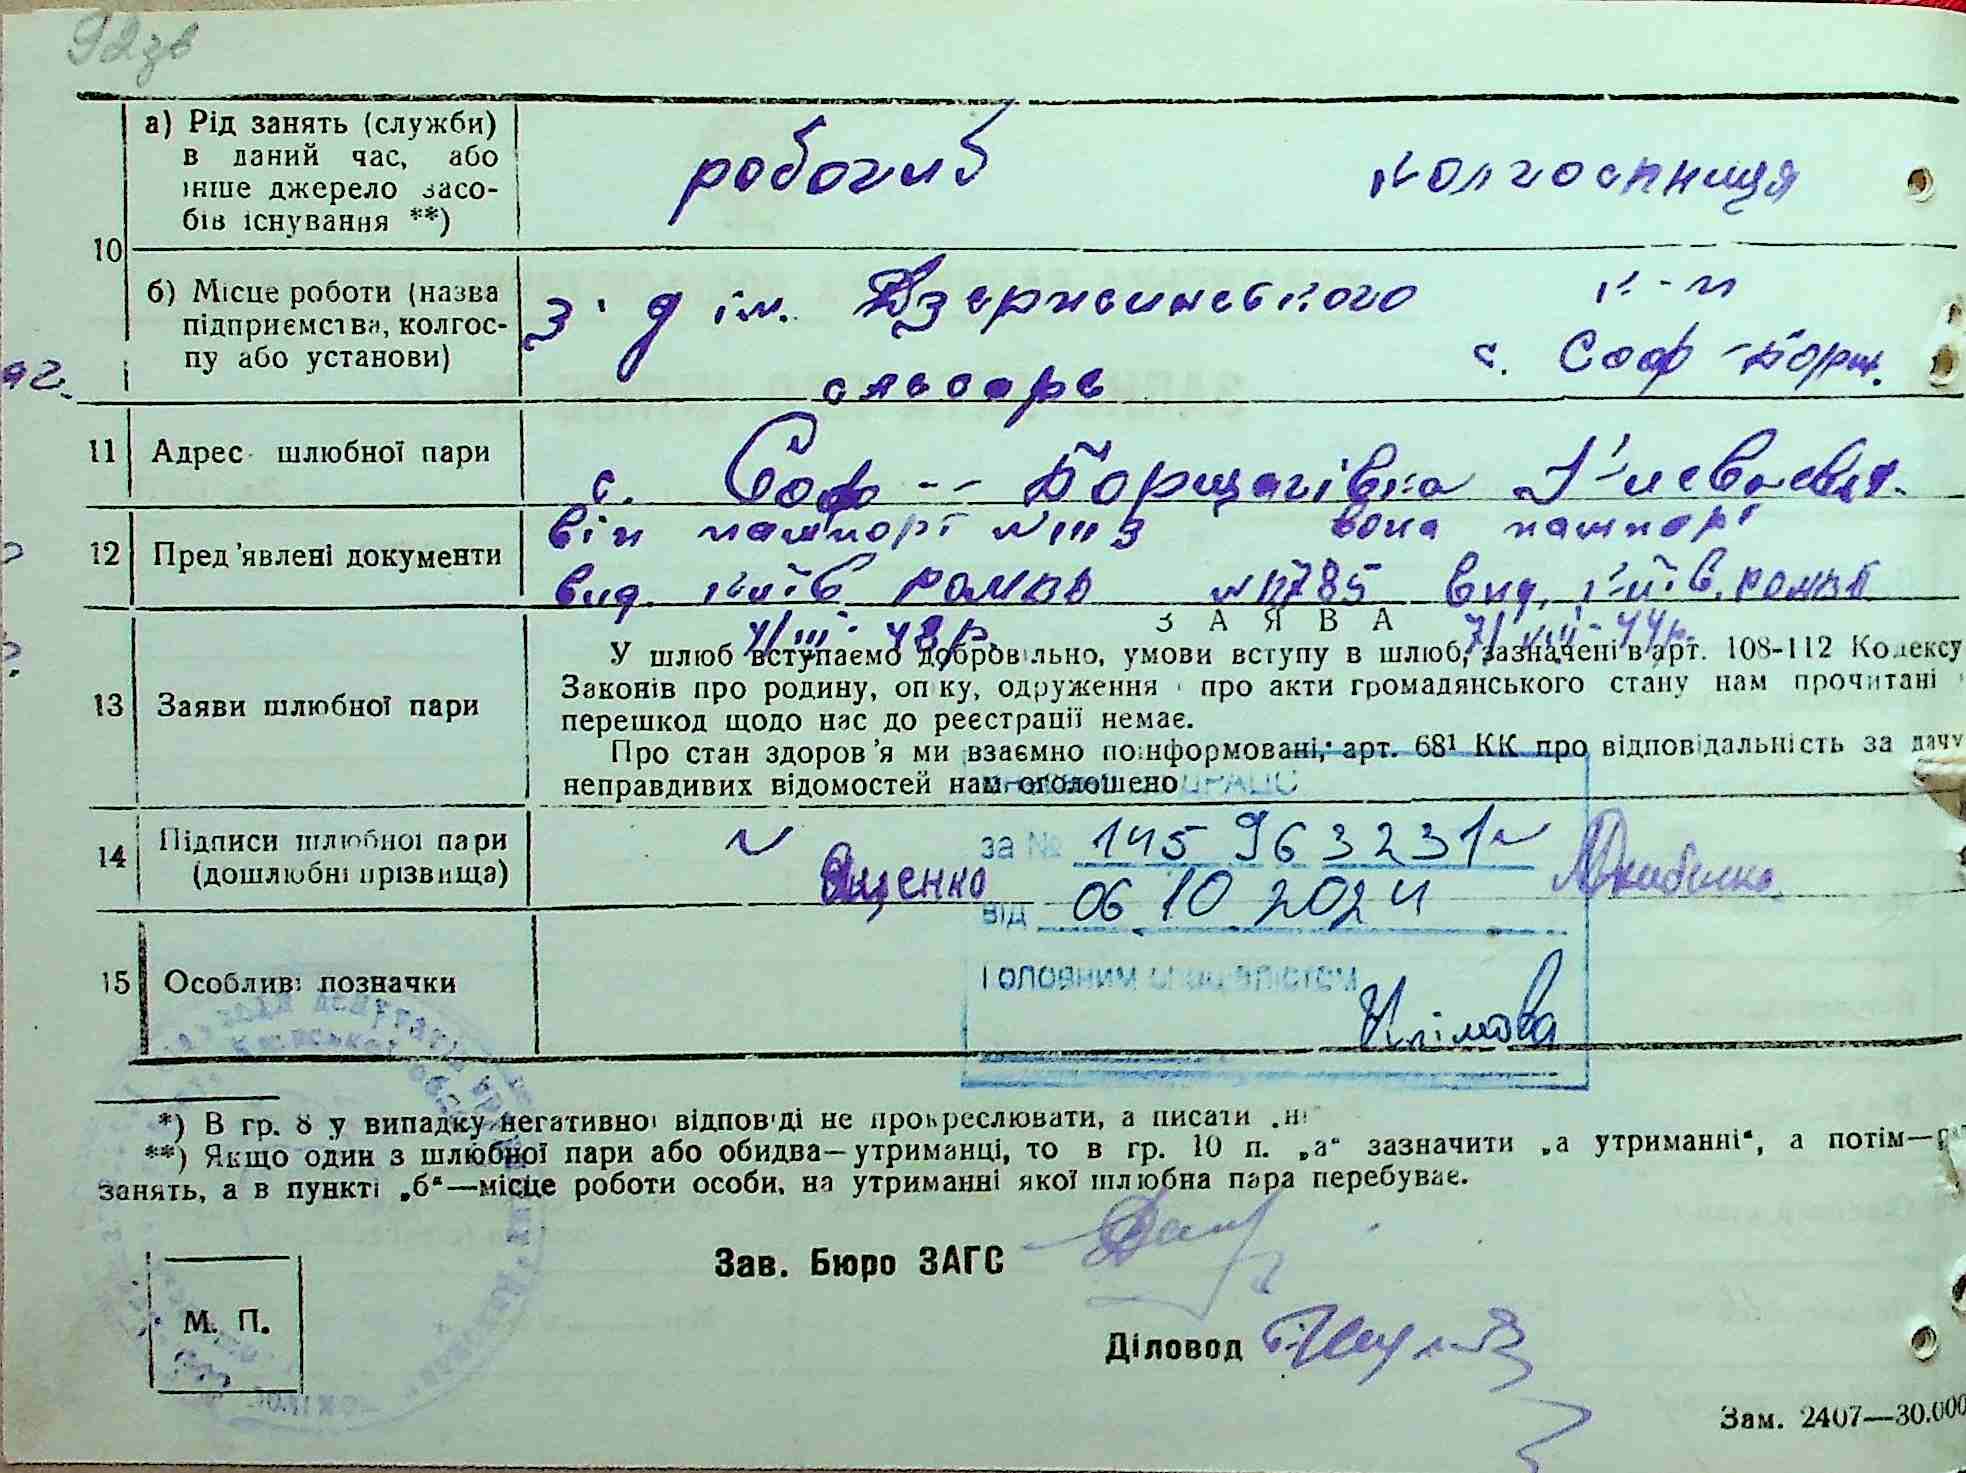 92зв
а) Рід занять (служби) в даний час, або інше джерело засобів існування **) робочий колгоспниця
10
б) Місце роботи (назва підприємства, колгоспу або установи) з-д ім. Дзержинського к-п
слюсарь с. Соф-Борщ.
11 Адрес шлюбної пари с. Соф-Борщагівка Києво-Свят.
12 Пред'явлені документи він пашпорт № III З вона пашпорт
вид. Київ РОМВД № 11785 вид. Київ. РОМВД
З А Я В А
13 Заяви шлюбної пари
У шлюб вступаємо добровільно, умови вступу в шлюб, зазначені в арт. 108-112 Кодексу
Законів про родину, опіку, одруження і про акти громадянського стану нам прочитані і
перешкод щодо нас до реєстрації немає.
Про стан здоров'я ми взаємно поінформовані; арт. 68¹ КК про відповідальність за дачу
неправдивих відомостей нам оголошено
14 Підписи шлюбної пари (дошлюбні прізвища) Яценко
за № 145 963231
від 06 10 2024
15 Особливі позначки
Головним спеціалістом
Клімова
*) В гр. 8 у випадку негативної відповіді не прокреслювати, а писати „ні
**) Якщо один з шлюбної пари або обидва—утриманці, то в гр. 10 п. „а“ зазначити „а утриманні“, а потім—рід
занять, а в пункті „б“—місце роботи особи, на утриманні якої шлюбна пара перебуває.
Зав. Бюро ЗАГС
М. П.
Діловод
Зам. 2407—30.000